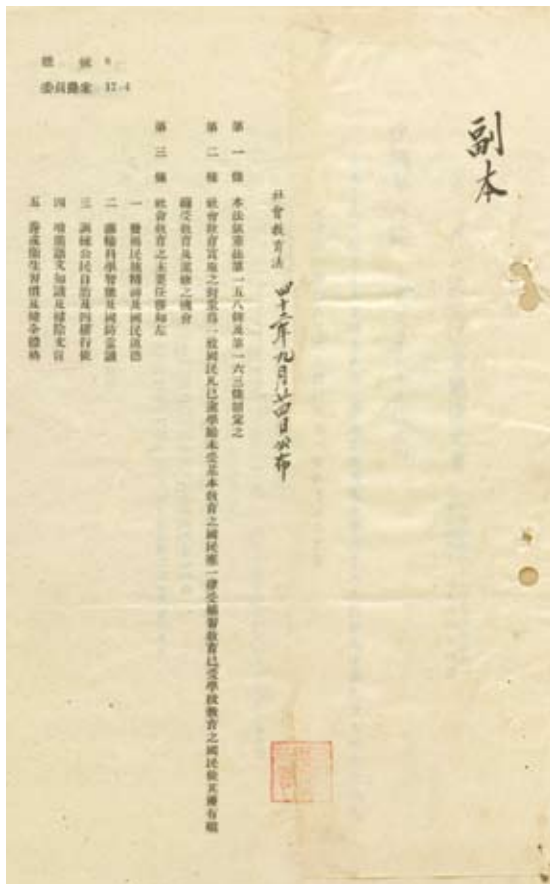 副本
社會教育法 四十二年九月廿四日公布
第一條 本法依憲法第一五八條及第一六三條制定之
第二條 社會教育實施之對象為一般國民凡已逾學齡未受基本教育之國民應一律受補習教育已受學校教育之國民使其獲有繼
續受教育及進修之機會
第三條 社會教育之主要任務如左
一 發揚民族精神及國民道德
二 灌輸科學智能及國防常識
三 訓練公民自治及四權行使
四 增進語文知識及掃除文盲
五 養成衛生習慣及健全體格
號 8
委員提案 17-4